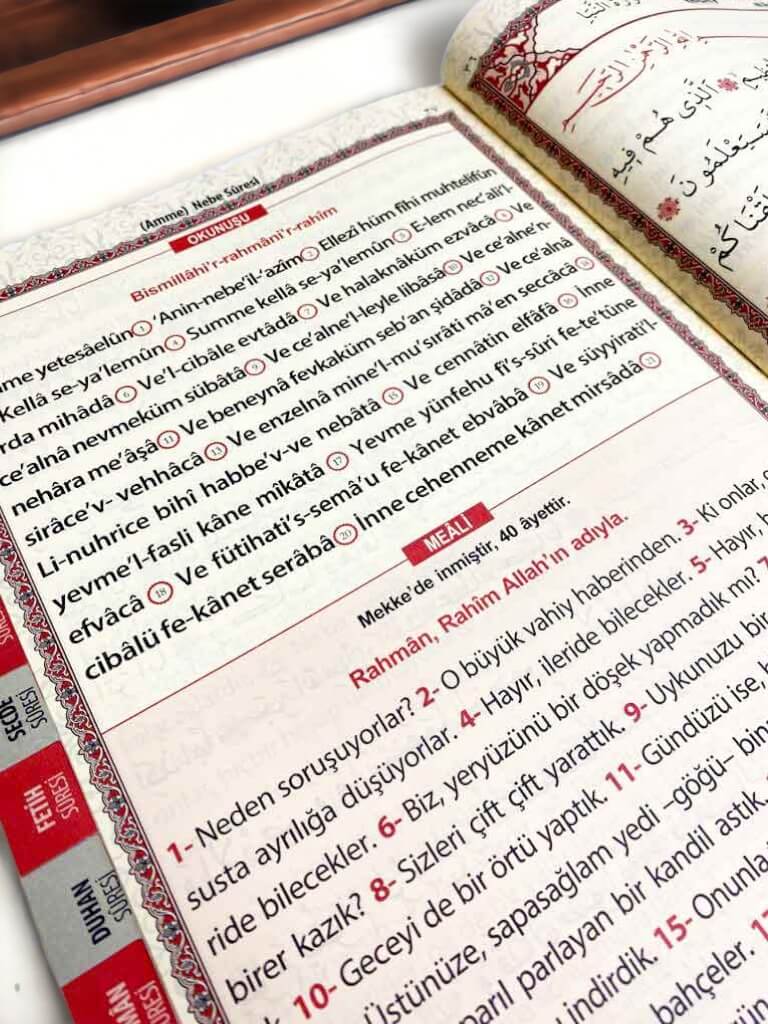 (Amme) Nebe Sûresi
OKUNUŞU
Bismillâhi'r-rahmâni'r-rahim
yetesâelûn 1 'Anin-nebe'il-'azîm 2 Ellezî hüm fîhi muhtelifûn
Kellâ se-ya'lemûn 4 Summe kellâ se-ya'lemûn 5 E-lem nec'ali'l-
mihâdâ 6 Ve'l-cibâle evtâdâ 7 Ve halaknâküm ezvâcâ Ve
ce'alnâ nevmeküm sübâtâ 9 Ve ce'alne'l-leyle libâsâ 10 Ve ce'alne'n-
nehâra me'âşâ 11 Ve beneynâ fevkaküm seb'an şidâdâ 12 Ve ce'alnâ
sirâce'v- vehhâcâ 13 Ve enzelnâ mine'l-mu'sırâti mâ'en seccâcâ 14
Li-nuhrice bihî habbe'v-ve nebâtâ 15 Ve cennâtin elfâfâ 16 İnne
yevme'l-fasli kâne mîkâtâ 17 Yevme yünfehu fi's-sûri fe-te'tûne
efvâcâ 18 Ve fütihati's-semâ'u fe-kânet ebvâbâ 19 Ve süyyirati'l-
cibâlü fe-kânet serâbâ 20 İnne cehenneme kânet mirsâdâ 21
MEÂLİ
Mekke'de inmiştir, 40 âyettir.
Rahmân, Rahîm Allah'ın adıyla.
1- Neden soruşuyorlar? 2- O büyük vahiy haberinden. 3- Ki onlar,
susta ayrılığa düşüyorlar. 4- Hayır, ileride bilecekler. 5- Hayır,
ride bilecekler. 6- Biz, yeryüzünü bir döşek yapmadık mı?
birer kazık? 8- Sizleri çift çift yarattık. 9- Uykunuzu bir
10- Geceyi de bir örtü yaptık. 11- Gündüzü ise,
Üstünüze, sapasağlam yedi –göğü– bin
parıl parlayan bir kandil astık.
indirdik. 15- Onunla
bahçeler.
SECDE
SÛRESİ
FETİH
SÛRESİ
DUHAN
SÛRESİ
SÛRESİ
الَّذِي هُمْ فِيهِ
سَيَعْلَمُونَ